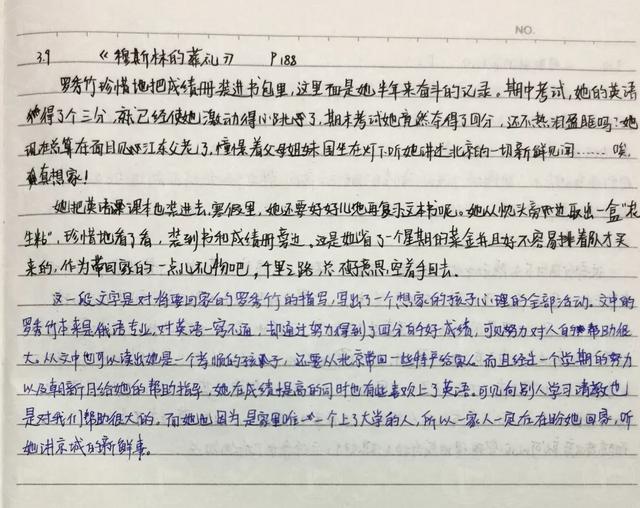 NO.
3.9 《穆斯林的葬礼》 P188
罗秀竹珍惜地把成绩册装进书包里,这里面是她半年来奋斗的记录。期中考试,她的英语
得了个三分,就已经使她激动得心跳了,期末考试她竟然夺得了四分,还不热泪盈眶吗?她
现在总算有面目见江东父老了,憧憬着父母姐妹围坐在灯下听她讲述北京的一切新鲜见闻……唉,
真有想家!
她把英语课课本也装进去,寒假里,她还要好好儿地再复习这本书呢。她从枕头旁边取出一盒“花
生粘”,珍惜地看了看,装到书和成绩册旁边。这是她省了一个星期的菜金并且好不容易排着队才买
来的,作为带回家的一点儿礼物吧,千里之路,总不好意思空着手回去。
这一段文字是对将要回家的罗秀竹的描写,写出了一个想家的孩子心理的全部活动。文中的
罗秀竹本来是俄语专业,对英语一窍不通,却通过努力得到了四分的好成绩,可见努力对人的帮助很
大。从文中也可以读出她是一个孝顺的孩子,还要从北京带回一些特产给家人。而且经过一个学期的努力
以及韩新月给她的帮助指导,她在成绩提高的同时也有些喜欢上了英语。可见向别人学习请教也
是对我们帮助很大的。而她也因为是家里唯一一个上了大学的人,所以一家人一定在在盼她回家,听
她讲京城的新鲜事。